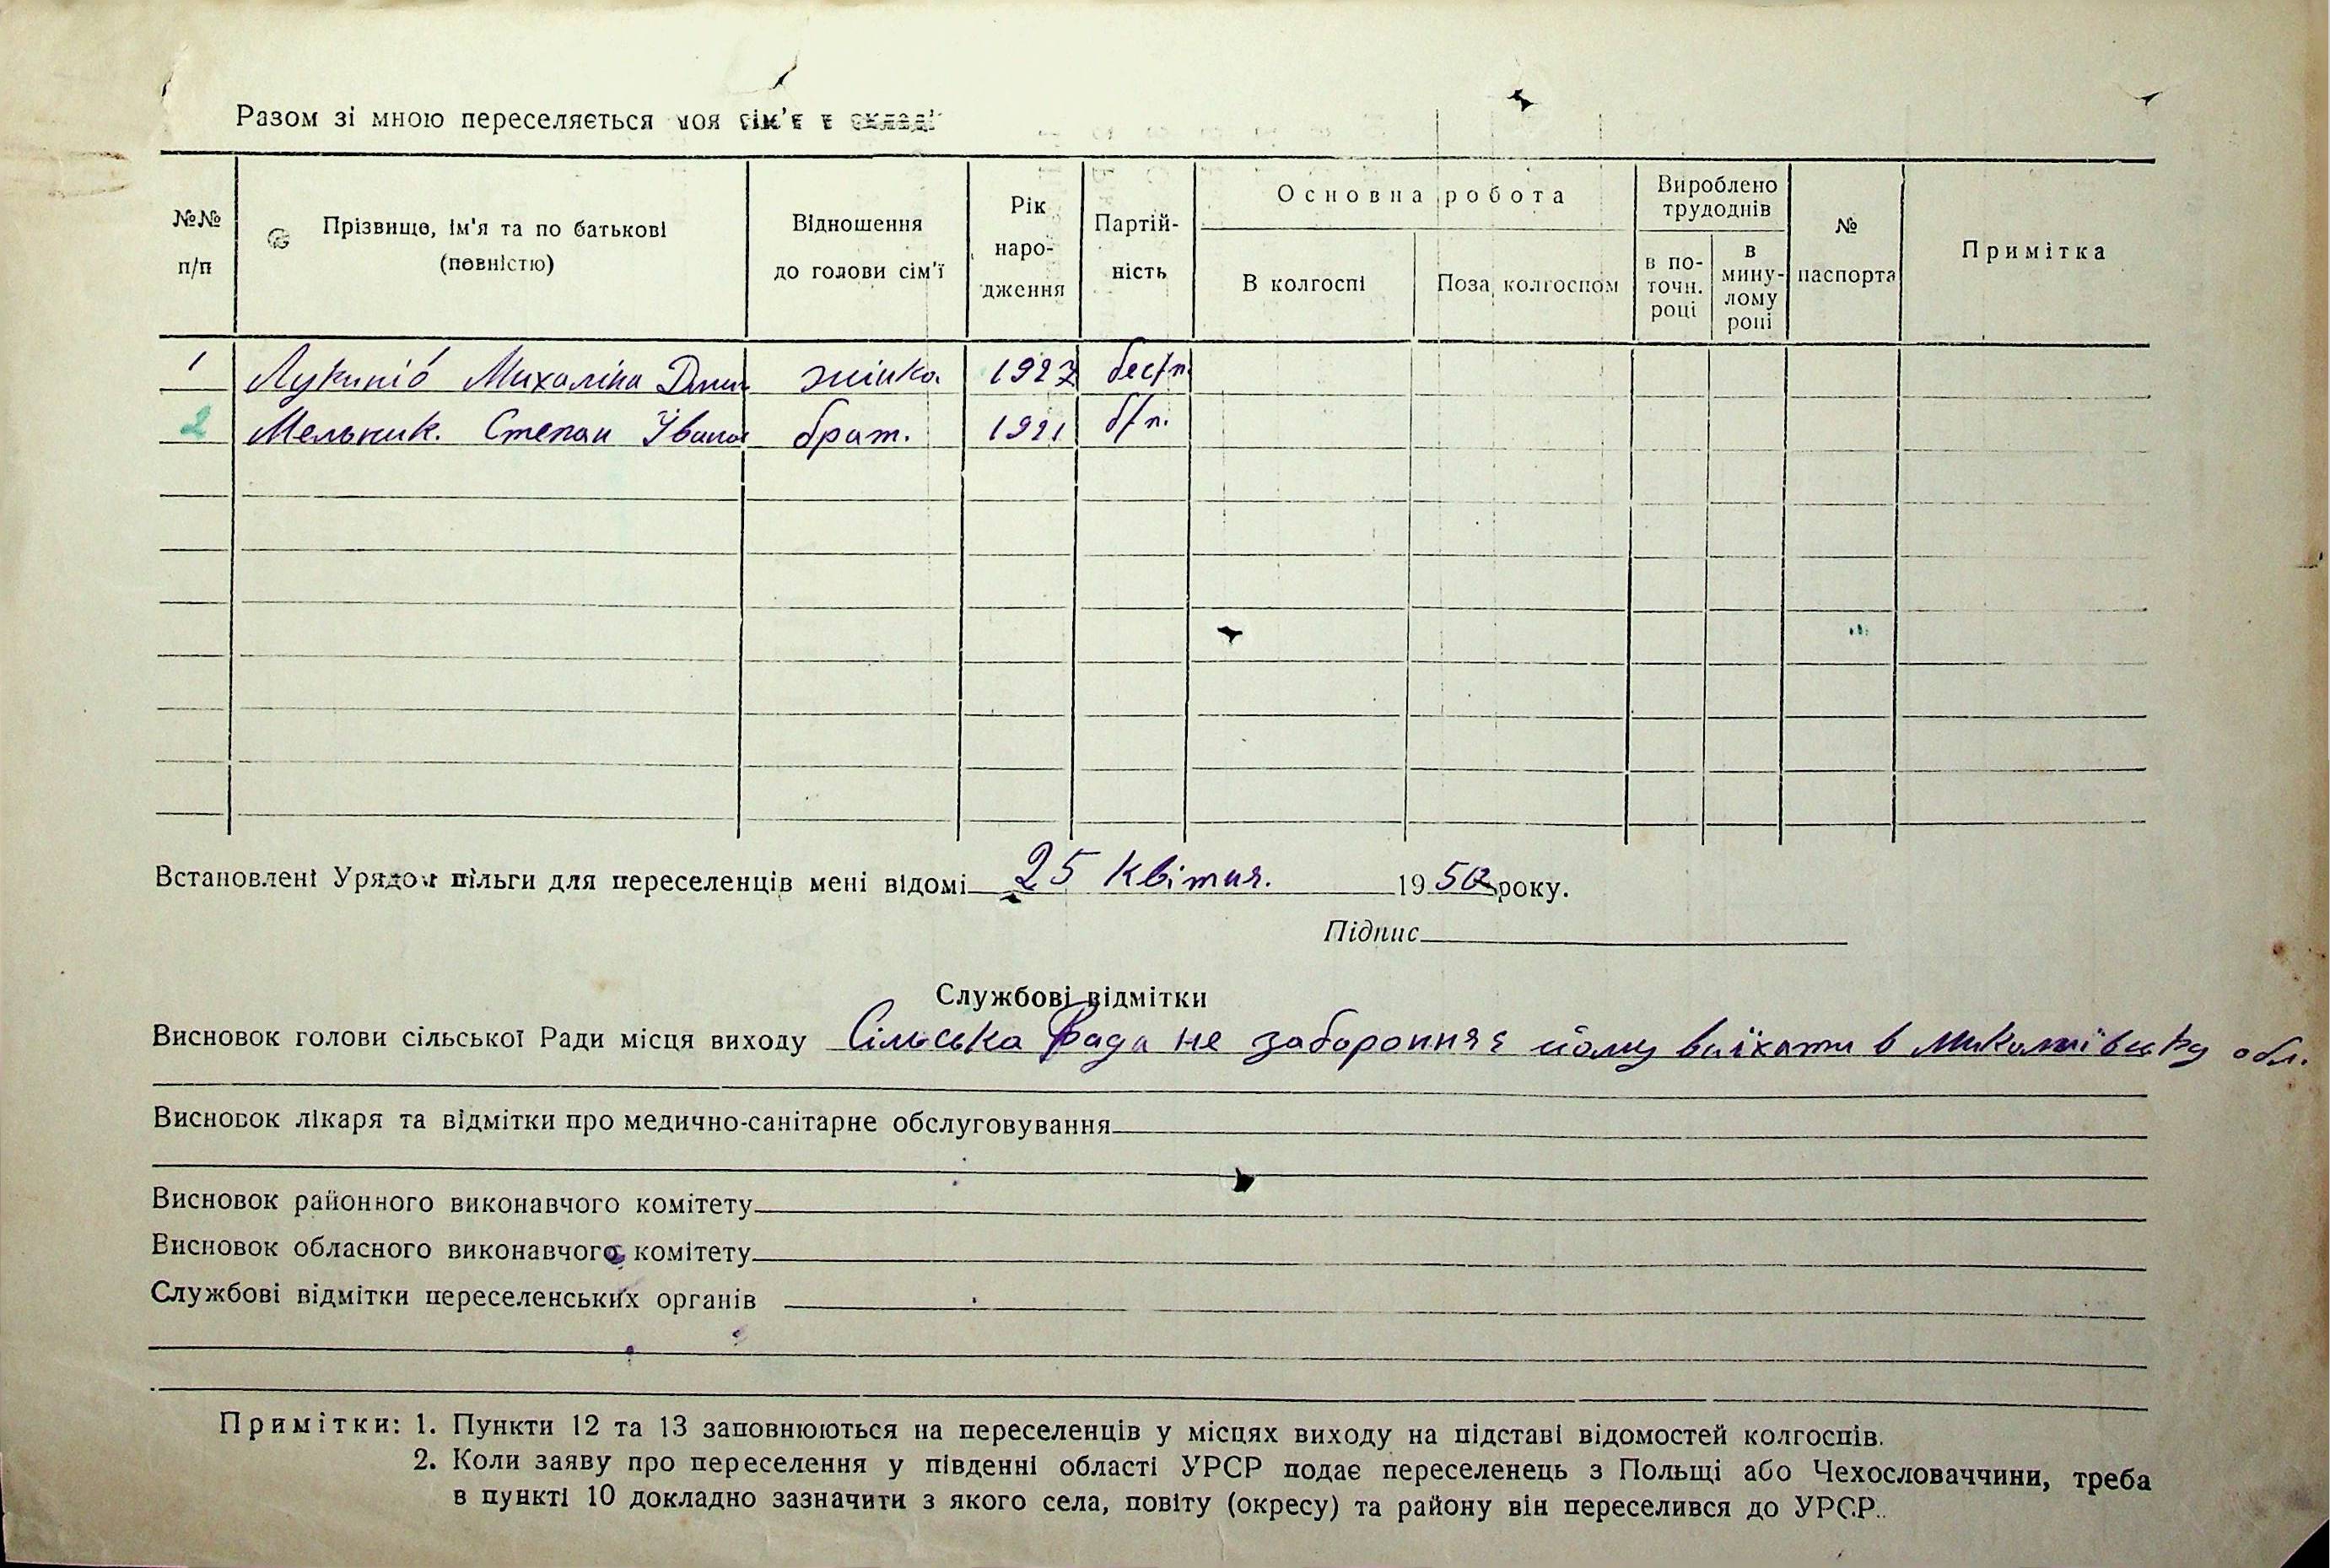 Разом зі мною переселяється моя сім'я в складі:
№№ п/п
Прізвище, ім'я та по батькові (повністю)
Відношення до голови сім'ї
Рік наро-дження
Партій-ність
Основна робота
В колгоспі
Поза колгоспом
Вироблено трудоднів
в по-точн. році
в мину-лому році
№ паспорта
Примітка
1 Михаліна жінка 1927 бес/п.
2 Мельник. Степан Іванов брат. 1921 б/п.
Встановлені Урядом пільги для переселенців мені відомі 25 Квітня. 1950 року.
Підпис
Службові відмітки
Висновок голови сільської Ради місця виходу Сільська Рада не забороняє йому виїхати в Миколаївську обл.
Висновок лікаря та відмітки про медично-санітарне обслуговування
Висновок районного виконавчого комітету
Висновок обласного виконавчого комітету
Службові відмітки переселенських органів
Примітки: 1. Пункти 12 та 13 заповнюються на переселенців у місцях виходу на підставі відомостей колгоспів.
2. Коли заяву про переселення у південні області УРСР подає переселенець з Польщі або Чехословаччини, треба
в пункті 10 докладно зазначити з якого села, повіту (окресу) та району він переселився до УРСР.